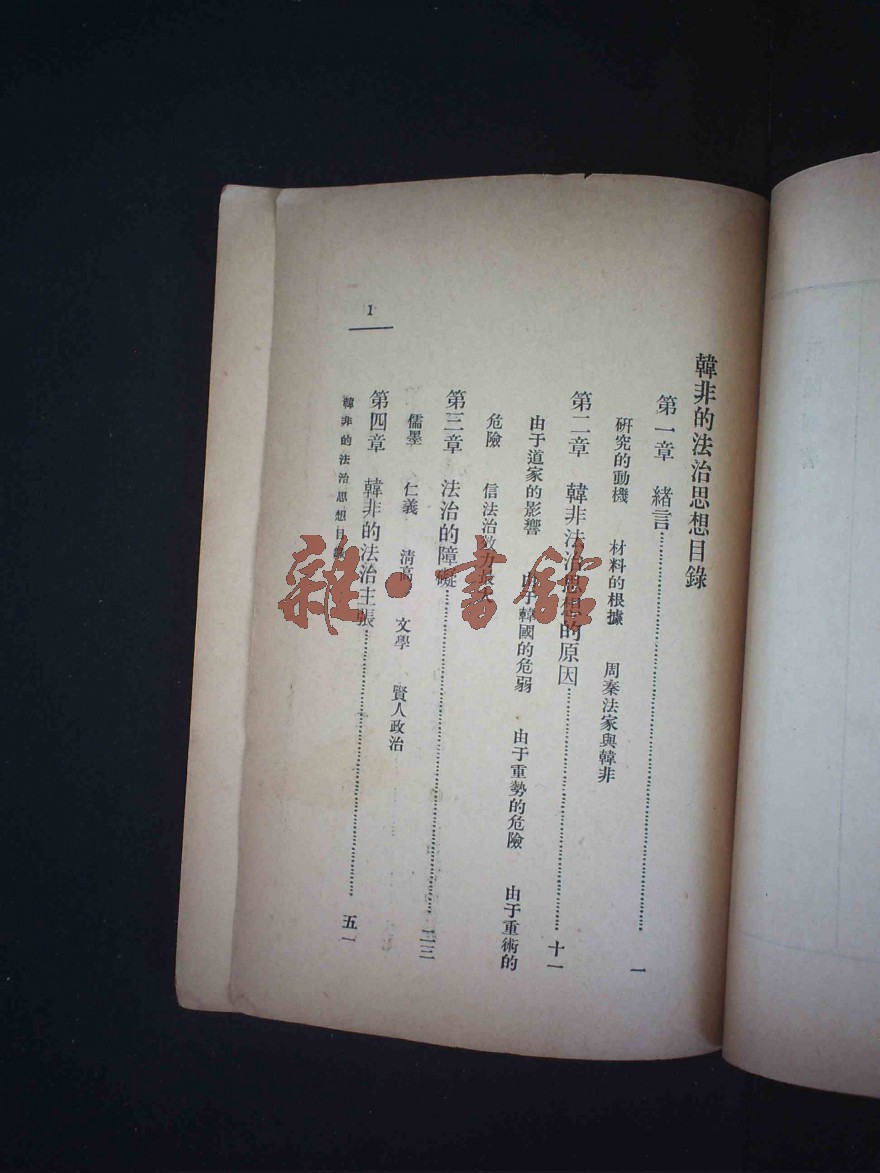 韓非的法治思想目錄
第一章 緒言 一
研究的動機 材料的根據 周秦法家與韓非
第二章 韓非法治思想的原因 十一
由于道家的影響 由于韓國的危弱 由于重勢的危險 由于重術的
危險 信法治效力最大
第三章 法治的障礙 二三
儒墨 仁義 清高 文學 賢人政治
第四章 韓非的法治主張 五一
韓非的法治思想目錄
1
雜·書館